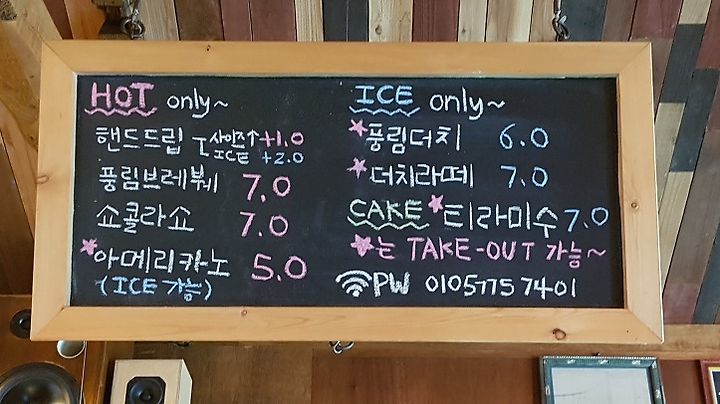 HOT only~
핸드드립 ㄷ 사이즈↑ +1.0
ICE +2.0
풍림브레붸 7.0
쇼콜라쇼 7.0
★아메리카노 5.0
(ICE 가능)
ICE only~
★풍림더치 6.0
★더치라떼 7.0
CAKE ★티라미수 7.0
★는 TAKE-OUT 가능~
PW 01057757401